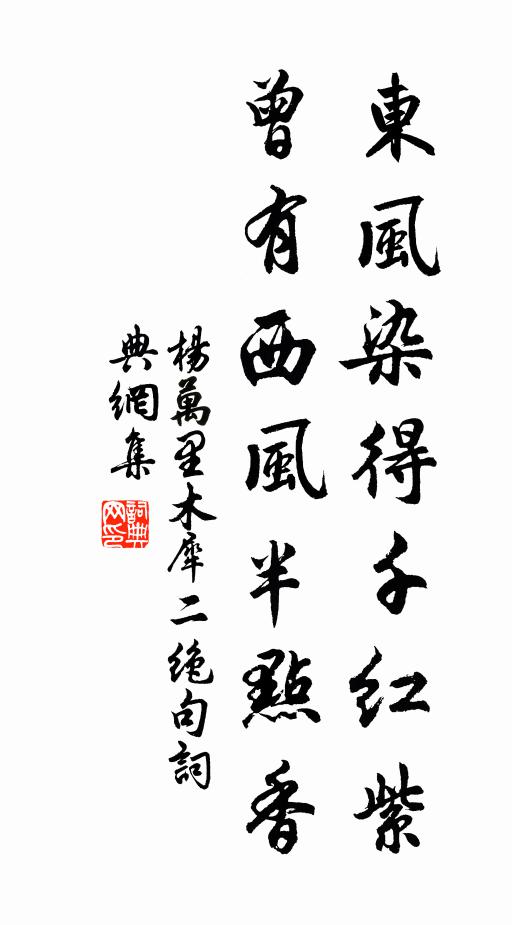 東風染得千紅紫
曾有西風半點香
楊萬里木犀二絶句詞
典網集
詞典
网印